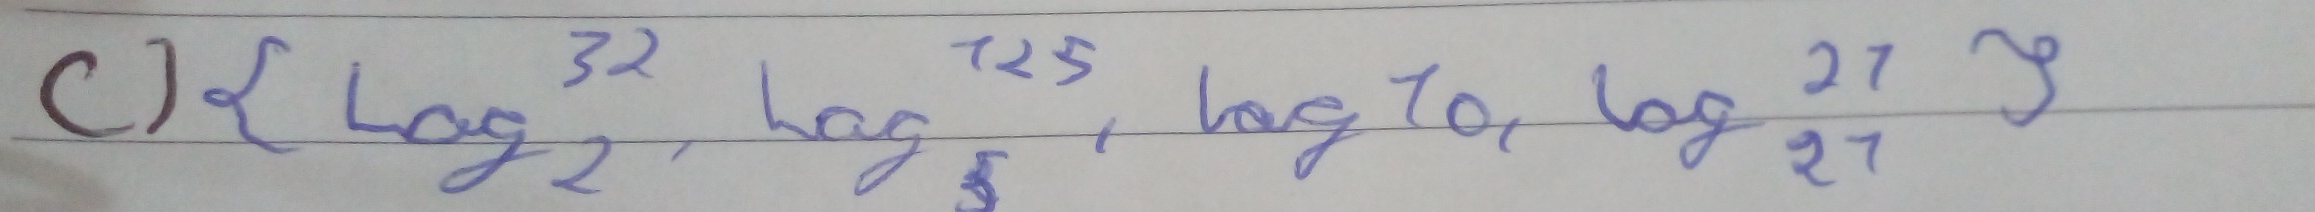 C) { Log₂³², Log₅¹²⁵, log 10, log₂₇²⁷ }